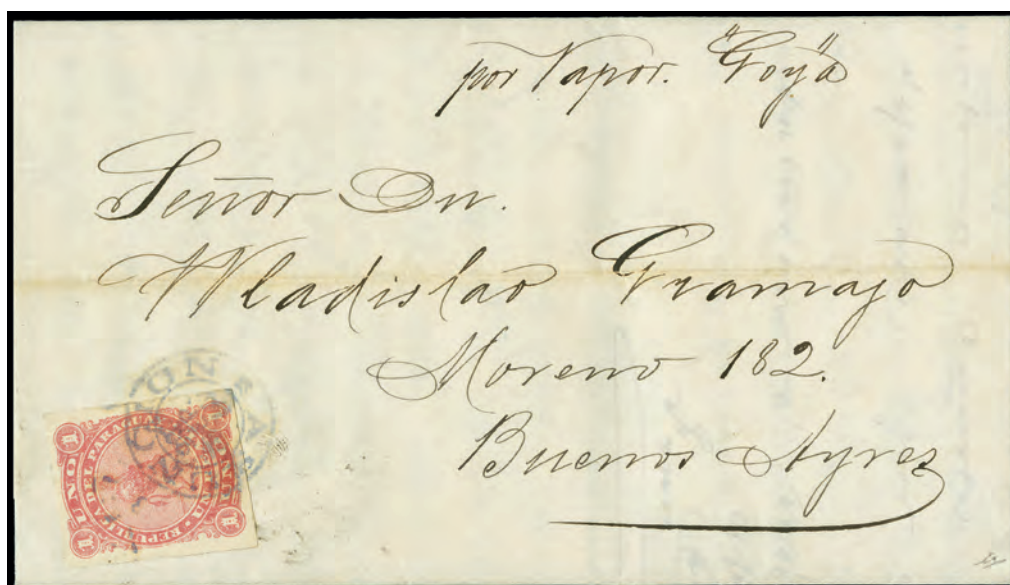 por Vapor. "Goya"
Señor Dn.
Wladislao Gramajo
Moreno 182.
Buenos Ayres
1 UNO 1
REPUBLICA DEL PARAGUAY
1 1